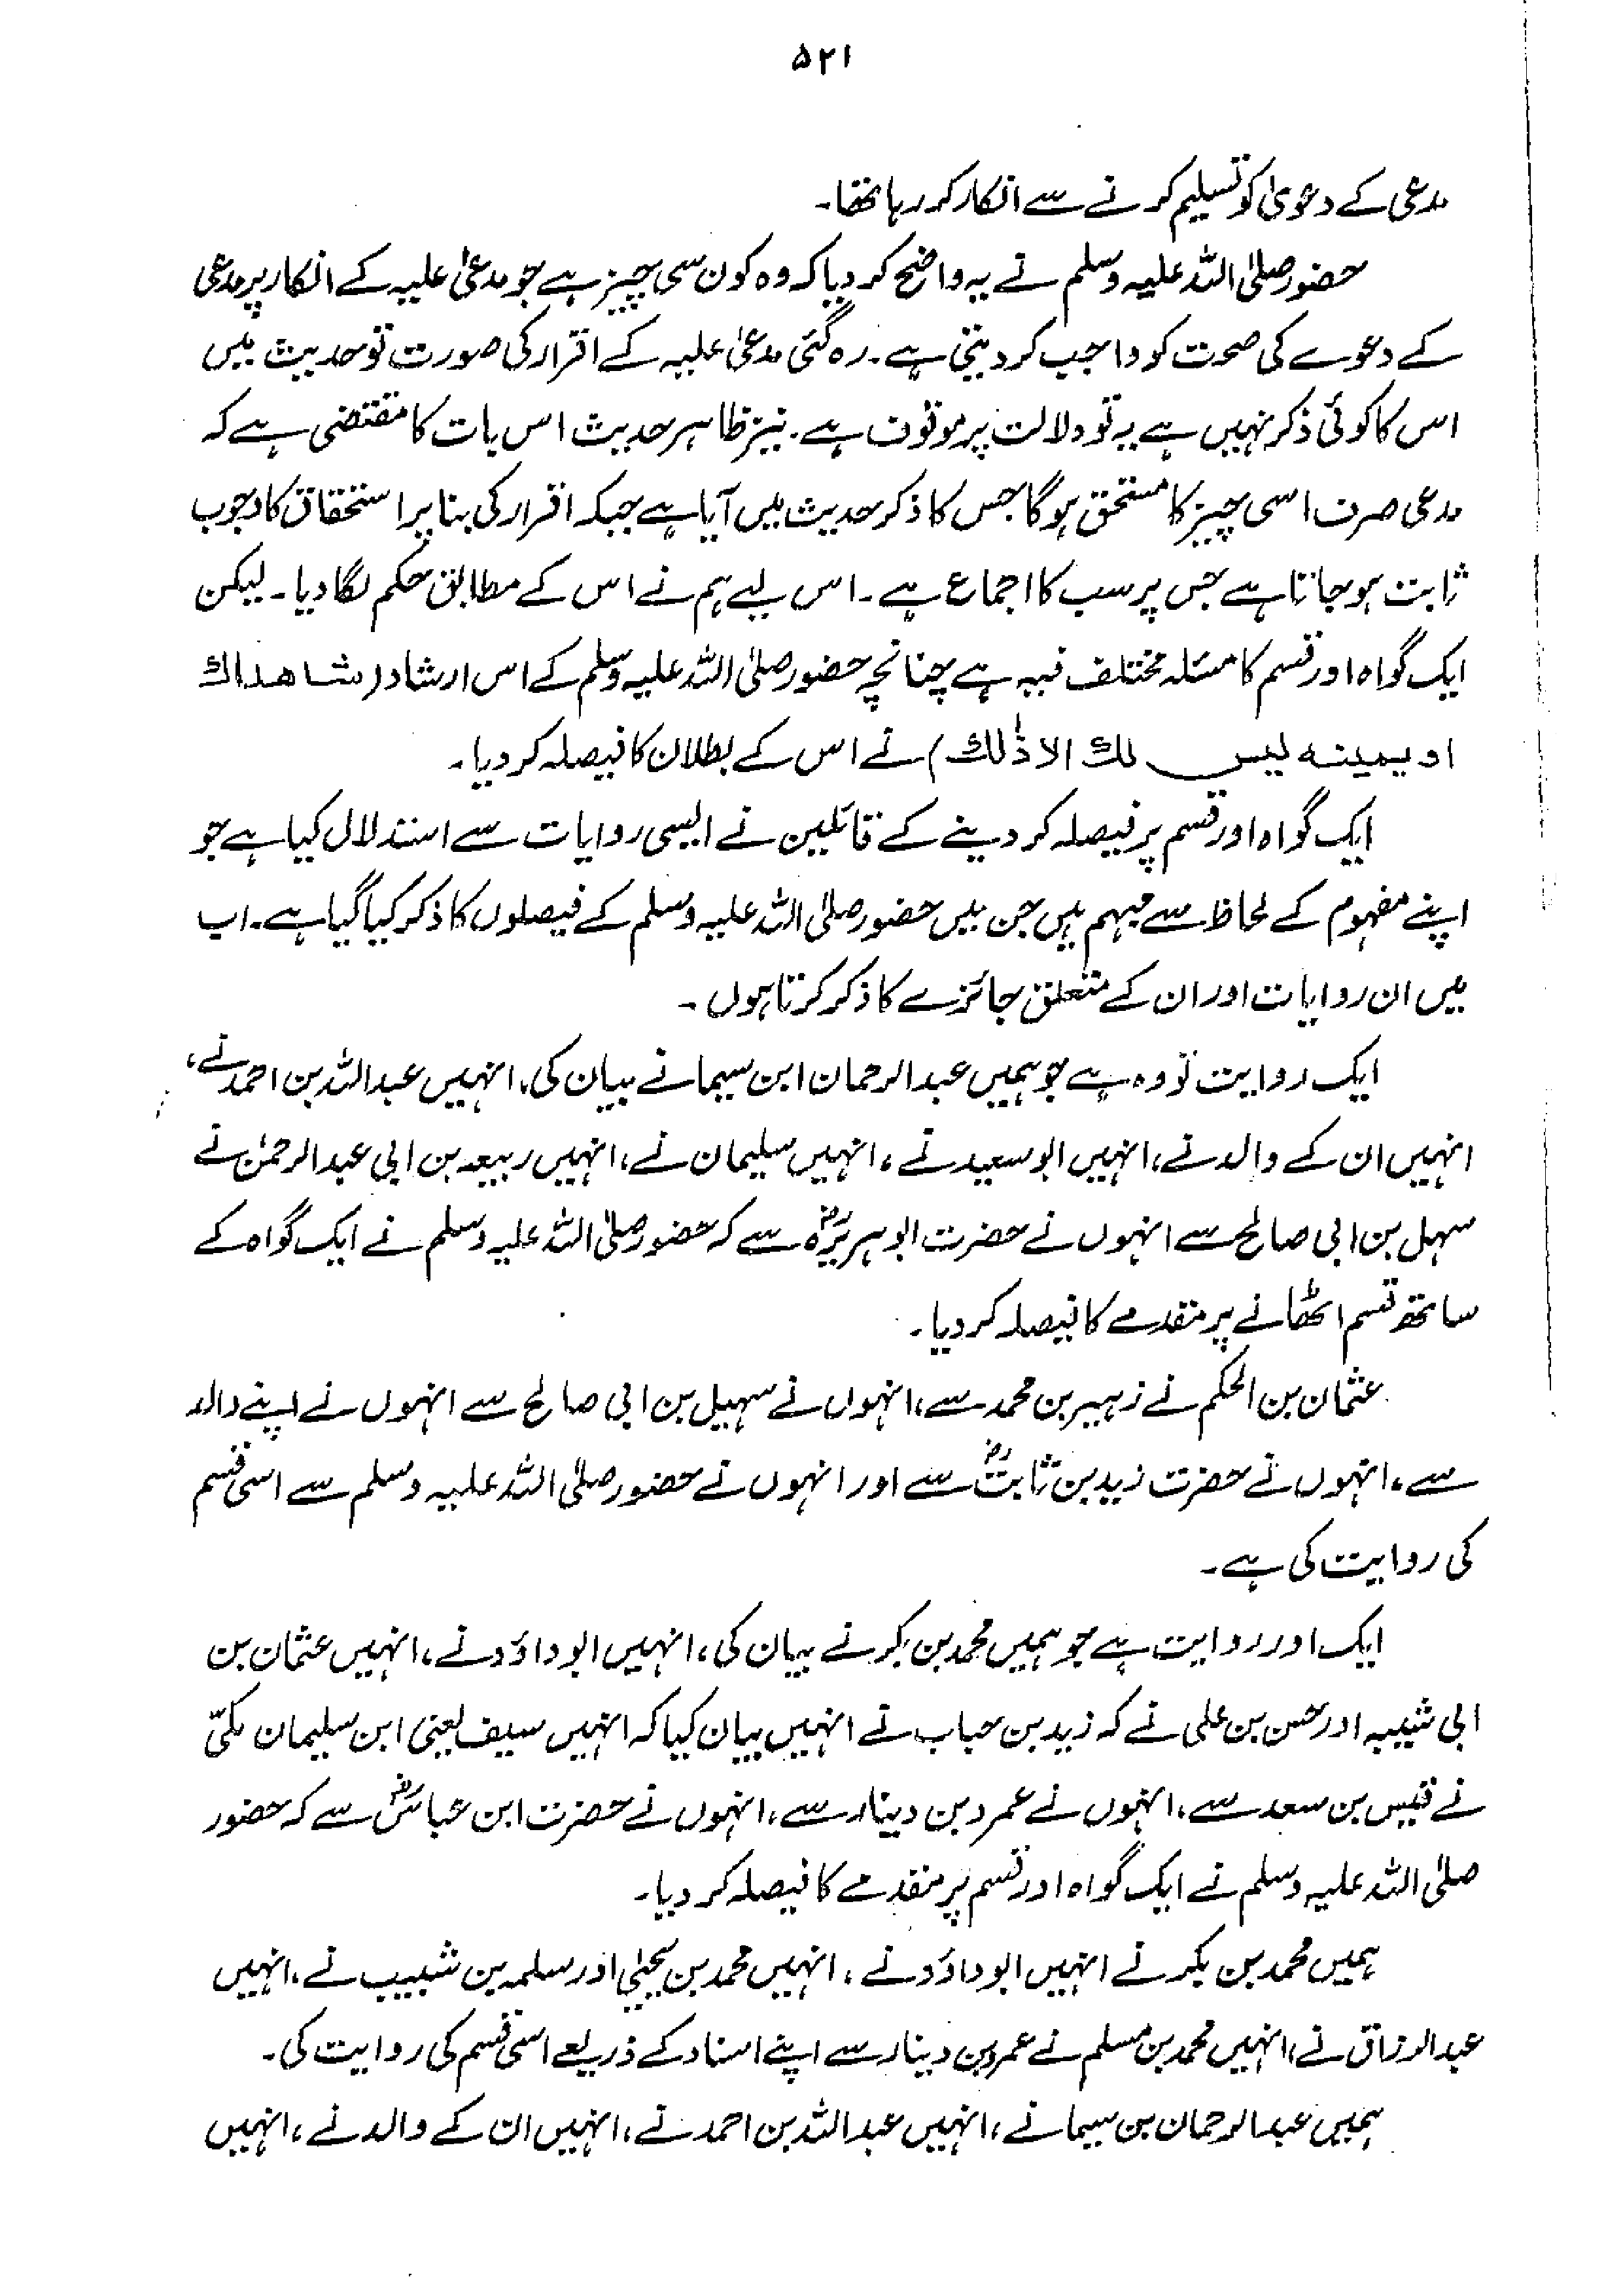 ۵۲۱
مدعی کے دعویٰ کو تسلیم کرنے سے انکار کر رہا تھا۔
حضور صلی اللہ علیہ وسلم نے یہ واضح کر دیا کہ وہ کون سی چیز ہے جو مدعیٰ علیہ کے انکار پر مدعی
کے دعوے کی صحت کو واجب کر دیتی ہے۔ رہ گئی مدعیٰ علیہ کے اقرار کی صورت تو حدیث میں
اس کا کوئی ذکر نہیں ہے یہ تو دلالت پر موقوف ہے۔ نیز ظاہر حدیث اس بات کا مقتضی ہے کہ
مدعی صرف اسی چیز کا مستحق ہوگا جس کا ذکر حدیث میں آیا ہے جبکہ اقرار کی بنا پر استحقاق کا وجوب
ثابت ہو جاتا ہے جس پر سب کا اجماع ہے۔ اس لیے ہم نے اس کے مطابق حکم لگا دیا۔ لیکن
ایک گواہ اور قسم کا مسئلہ مختلف فیہ ہے چنانچہ حضور صلی اللہ علیہ وسلم کے اس ارشاد (شاھداک
او یمینہ لیس لک الا ذٰلک) نے اس کے بطلان کا فیصلہ کر دیا۔
ایک گواہ اور قسم پر فیصلہ کر دینے کے قائلین نے ایسی روایات سے استدلال کیا ہے جو
اپنے مفہوم کے لحاظ سے مبہم ہیں جن میں حضور صلی اللہ علیہ وسلم کے فیصلوں کا ذکر کیا گیا ہے۔ اب
میں ان روایات اور ان کے متعلق جائزے کا ذکر کرتا ہوں۔
ایک روایت تو وہ ہے جو ہمیں عبدالرحمان ابن سیما نے بیان کی، انہیں عبداللہ بن احمد نے،
انہیں ان کے والد نے، انہیں ابو سعید نے، انہیں سلیمان نے، انہیں ربیعہ بن ابی عبدالرحمٰن نے
سہل بن ابی صالح سے انہوں نے حضرت ابو ہریرہؓ سے کہ حضور صلی اللہ علیہ وسلم نے ایک گواہ کے
ساتھ قسم اٹھانے پر مقدمے کا فیصلہ کر دیا۔
عثمان بن الحکم نے زہیر بن محمد سے، انہوں نے سہیل بن ابی صالح سے انہوں نے اپنے والد
سے، انہوں نے حضرت زید بن ثابتؓ سے اور انہوں نے حضور صلی اللہ علیہ وسلم سے اسی قسم
کی روایت کی ہے۔
ایک اور روایت ہے جو ہمیں محمد بن بکر نے بیان کی، انہیں ابو داؤد نے، انہیں عثمان بن
ابی شیبہ اور حسن بن علی نے کہ زید بن حباب نے انہیں بیان کیا کہ انہیں سیف یعنی ابن سلیمان مکیّ
نے قیس بن سعد سے، انہوں نے عمرو بن دینار سے، انہوں نے حضرت ابن عباسؓ سے کہ حضور
صلی اللہ علیہ وسلم نے ایک گواہ اور قسم پر مقدمے کا فیصلہ کر دیا۔
ہمیں محمد بن بکر نے انہیں ابو داؤد نے، انہیں محمد بن یحیٰی اور سلمہ بن شبیب نے، انہیں
عبدالرزاق نے، انہیں محمد بن مسلم نے عمرو بن دینار سے اپنے اسناد کے ذریعے اسی قسم کی روایت کی۔
ہمیں عبدالرحمان بن سیما نے، انہیں عبداللہ بن احمد نے، انہیں ان کے والد نے، انہیں